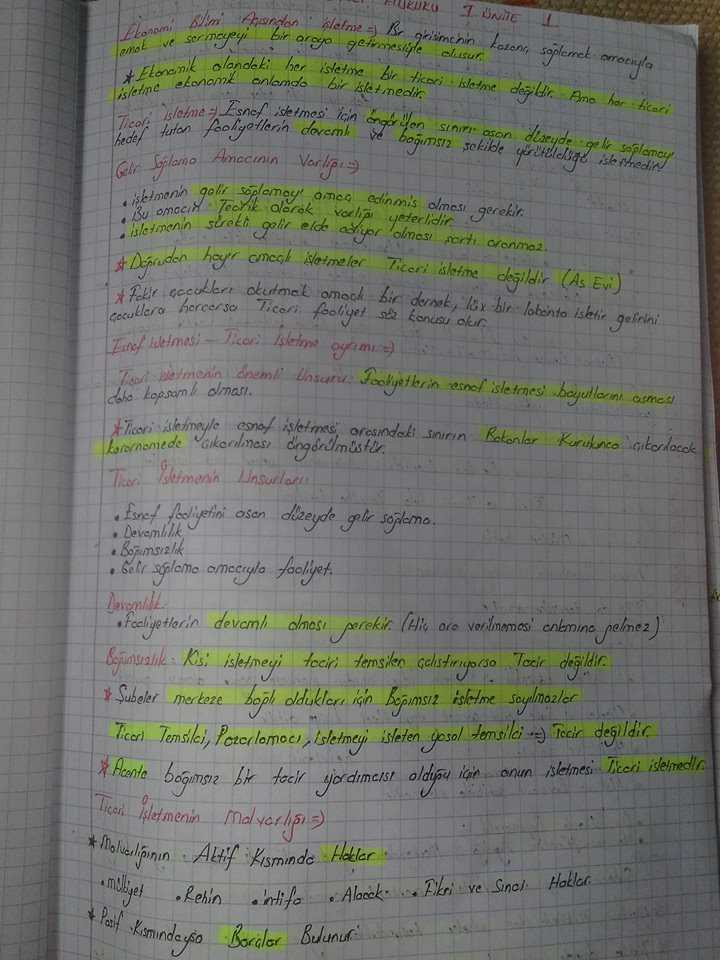 HUKUKU 1 ÜNİTE 1
Ekonomi Bilimi Açısından işletme => Bir girişimcinin kazanç sağlamak amacıyla
emek ve sermayeyi bir araya getirmesiyle oluşur.
* Ekonomik alandaki her işletme bir ticari işletme değildir. Ama her ticari
işletme ekonomik anlamda bir işletmedir.
Ticari işletme => Esnaf işletmesi için öngörülen sınırı aşan düzeyde gelir sağlamayı
hedef tutan faaliyetlerin devamlı ve bağımsız şekilde yürütüldüğü işletmedir.
Gelir Sağlama Amacının Varlığı =>
• işletmenin gelir sağlamayı amaç edinmiş olması gerekir.
• Bu amacın Teorik olarak varlığı yeterlidir.
• işletmenin sürekli gelir elde ediyor olması şartı aranmaz.
* Doğrudan hayır amaçlı işletmeler Ticari işletme değildir (Aş Evi)
* Fakir çocukları okutmak amaçlı bir dernek, lüx bir lokanta işletir gelirini
çocuklara harcarsa Ticari faaliyet söz konusu olur.
Esnaf işletmesi - Ticari işletme ayrımı =>
Ticari işletmenin önemli Unsuru: Faaliyetlerin esnaf işletmesi boyutlarını aşması
daha kapsamlı olması.
* Ticari işletmeyle esnaf işletmesi arasındaki sınırın Bakanlar Kurulunca çıkarılacak
kararnamede çıkarılması öngörülmüştür.
Ticari İşletmenin Unsurları:
• Esnaf faaliyetini aşan düzeyde gelir sağlama.
• Devamlılık
• Bağımsızlık
• Gelir sağlama amacıyla faaliyet.
Devamlılık:
• Faaliyetlerin devamlı olması gerekir. (Hiç ara verilmemesi anlamına gelmez)
Bağımsızlık: Kişi işletmeyi taciri temsilen çalıştırıyorsa Tacir değildir.
* Şubeler merkeze bağlı oldukları için Bağımsız işletme sayılmazlar
Ticari Temsilci, Pazarlamacı, işletmeyi işleten yasal temsilci => Tacir değildir.
* Acente bağımsız bir tacir yardımcısı olduğu için onun işletmesi Ticari işletmedir.
Ticari İşletmenin Malvarlığı =>
* Malvarlığının Aktif Kısmında Haklar
• mülkiyet • Rehin • intifa • Alacak • Fikri ve Sınai Haklar
* Pasif Kısmındaysa Borçlar Bulunur